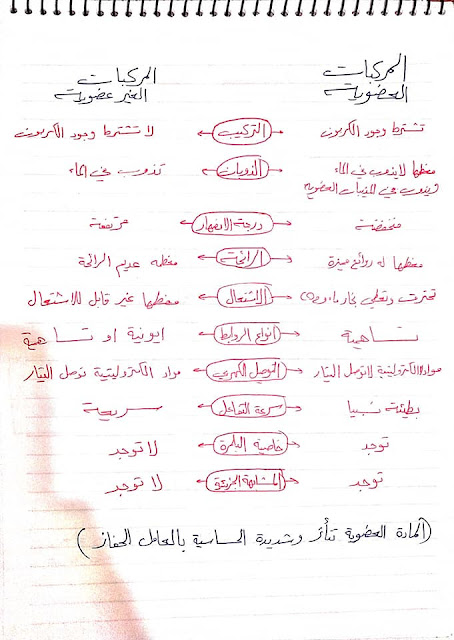 المركبات العضوية المركبات الغير عضوية
تشترط وجود الكربون التركيب لا تشترط وجود الكربون
معظمها لا يذوب في الماء الذوبان تذوب في الماء
ويذوب في المذيبات العضوية
منخفضة درجة الانصهار مرتفعة
معظمها له روائح مميزة الرائحة معظمه عديم الرائحة
تحترق وتعطي بخار ماء و CO2 الاشتعال معظمها غير قابل للاشتعال
تساهمية انواع الروابط ايونية او تساهمية
مواد لاالكتروليتية لا توصل التيار التوصيل الكهربي مواد الكتروليتية توصل التيار
بطيئة نسبيا سرعة التفاعل سريعة
توجد خاصية البلمرة لا توجد
توجد المشابهة الجزيئية لا توجد
(المادة العضوية تتأثر وشديدة الحساسية بالعامل الحفاز)